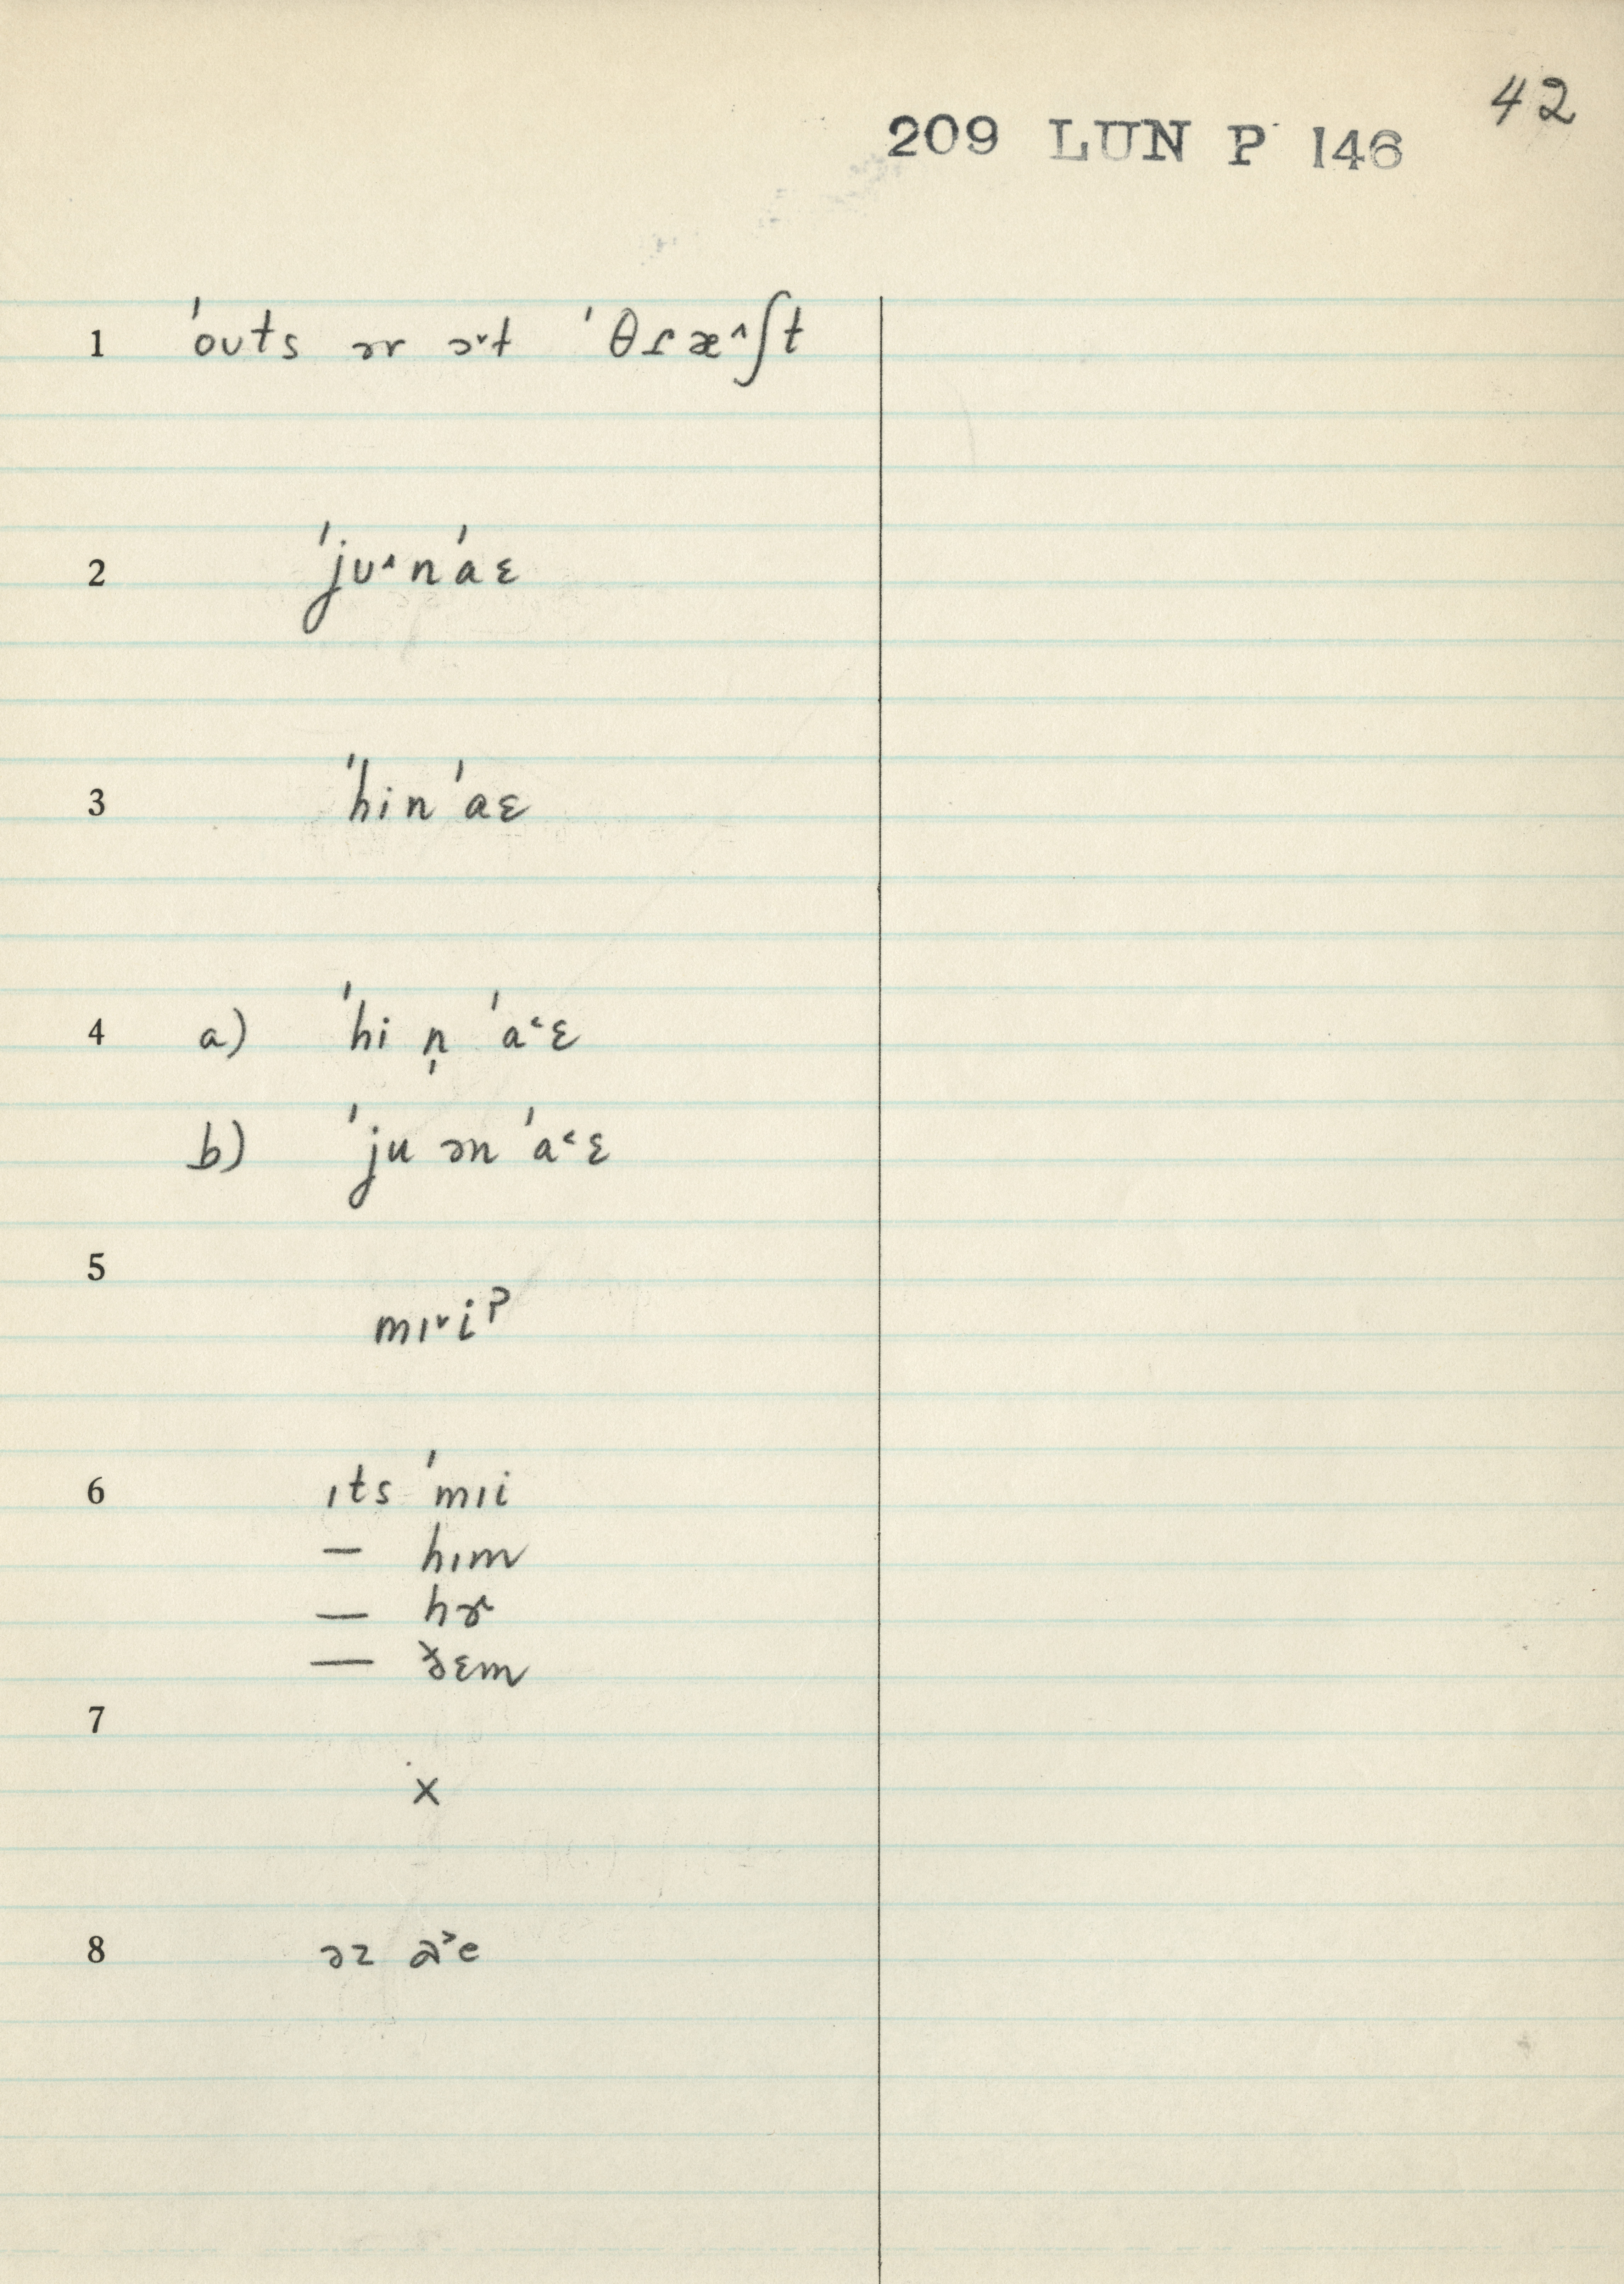 42
209 LUN P 146
1 ˈoʊts ər ɔ˅t ˈθɾæ^ʃt
2 ˈjʊ^nˈaɛ
3 ˈhinˈaɛ
4 a) ˈhi n̩ ˈa˂ɛ
b) ˈju ən ˈa˂ɛ
5
mɪ˅iˀ
6 ɪts ˈmɪi
— hɪm
— hɚ
— ð̵ɛm
7
x
8 əz a˃e